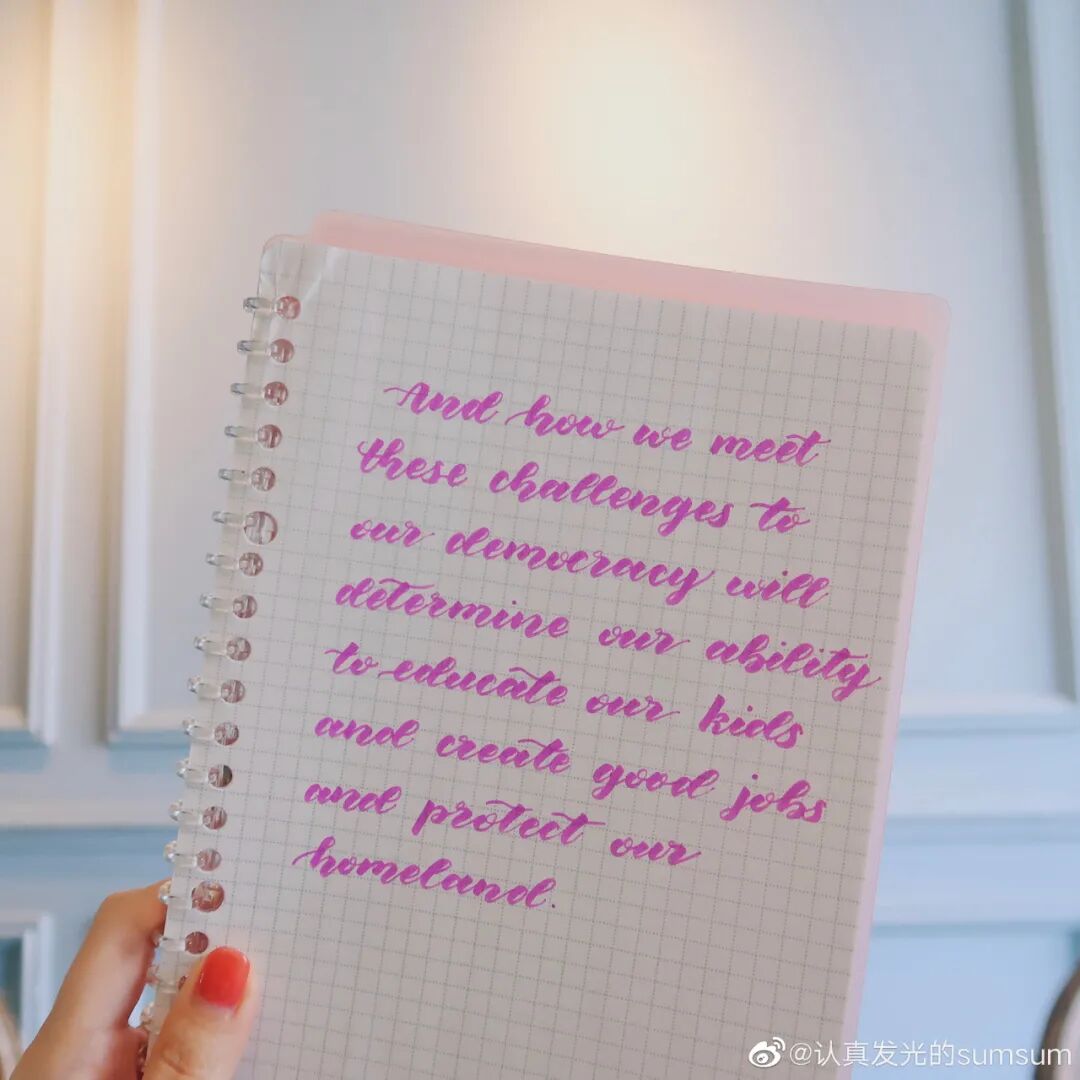 And how we meet
these challenges to
our democracy will
determine our ability
to educate our kids
and create good jobs
and protect our
homeland.
@认真发光的sumsum